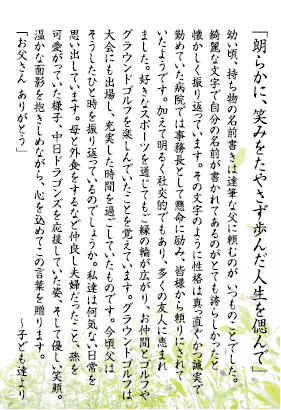 「朗らかに、笑みをたやさず歩んだ人生を偲んで」
幼い頃、持ち物の名前書きは達筆な父に頼むのが、いつものことでした。
綺麗な文字で自分の名前が書かれてあるのがとても誇らしかったと
懐かしく振り返っています。その文字のように性格は真っ直ぐかつ誠実で
勤めていた病院では事務長として懸命に励み、皆様から頼りにされて
いたようです。加えて明るく社交的でもあり、多くの友人に恵まれ
ました。好きなスポーツを通じてもご縁の輪が広がり、お仲間とゴルフや
グラウンドゴルフを楽しんでいたことを覚えています。グラウンドゴルフは
大会にも出場し、充実した時間を過ごしていたものです。今頃父は
そうしたひと時を振り返っているのでしょうか。私達は何気ない日常を
思い出しています。母と外食をするなど仲良し夫婦だったこと、孫を
可愛がっていた様子、中日ドラゴンズを応援していた姿、そして優しい笑顔。
温かな面影を抱きしめながら、心を込めてこの言葉を贈ります。
「お父さん ありがとう」
～子ども達より